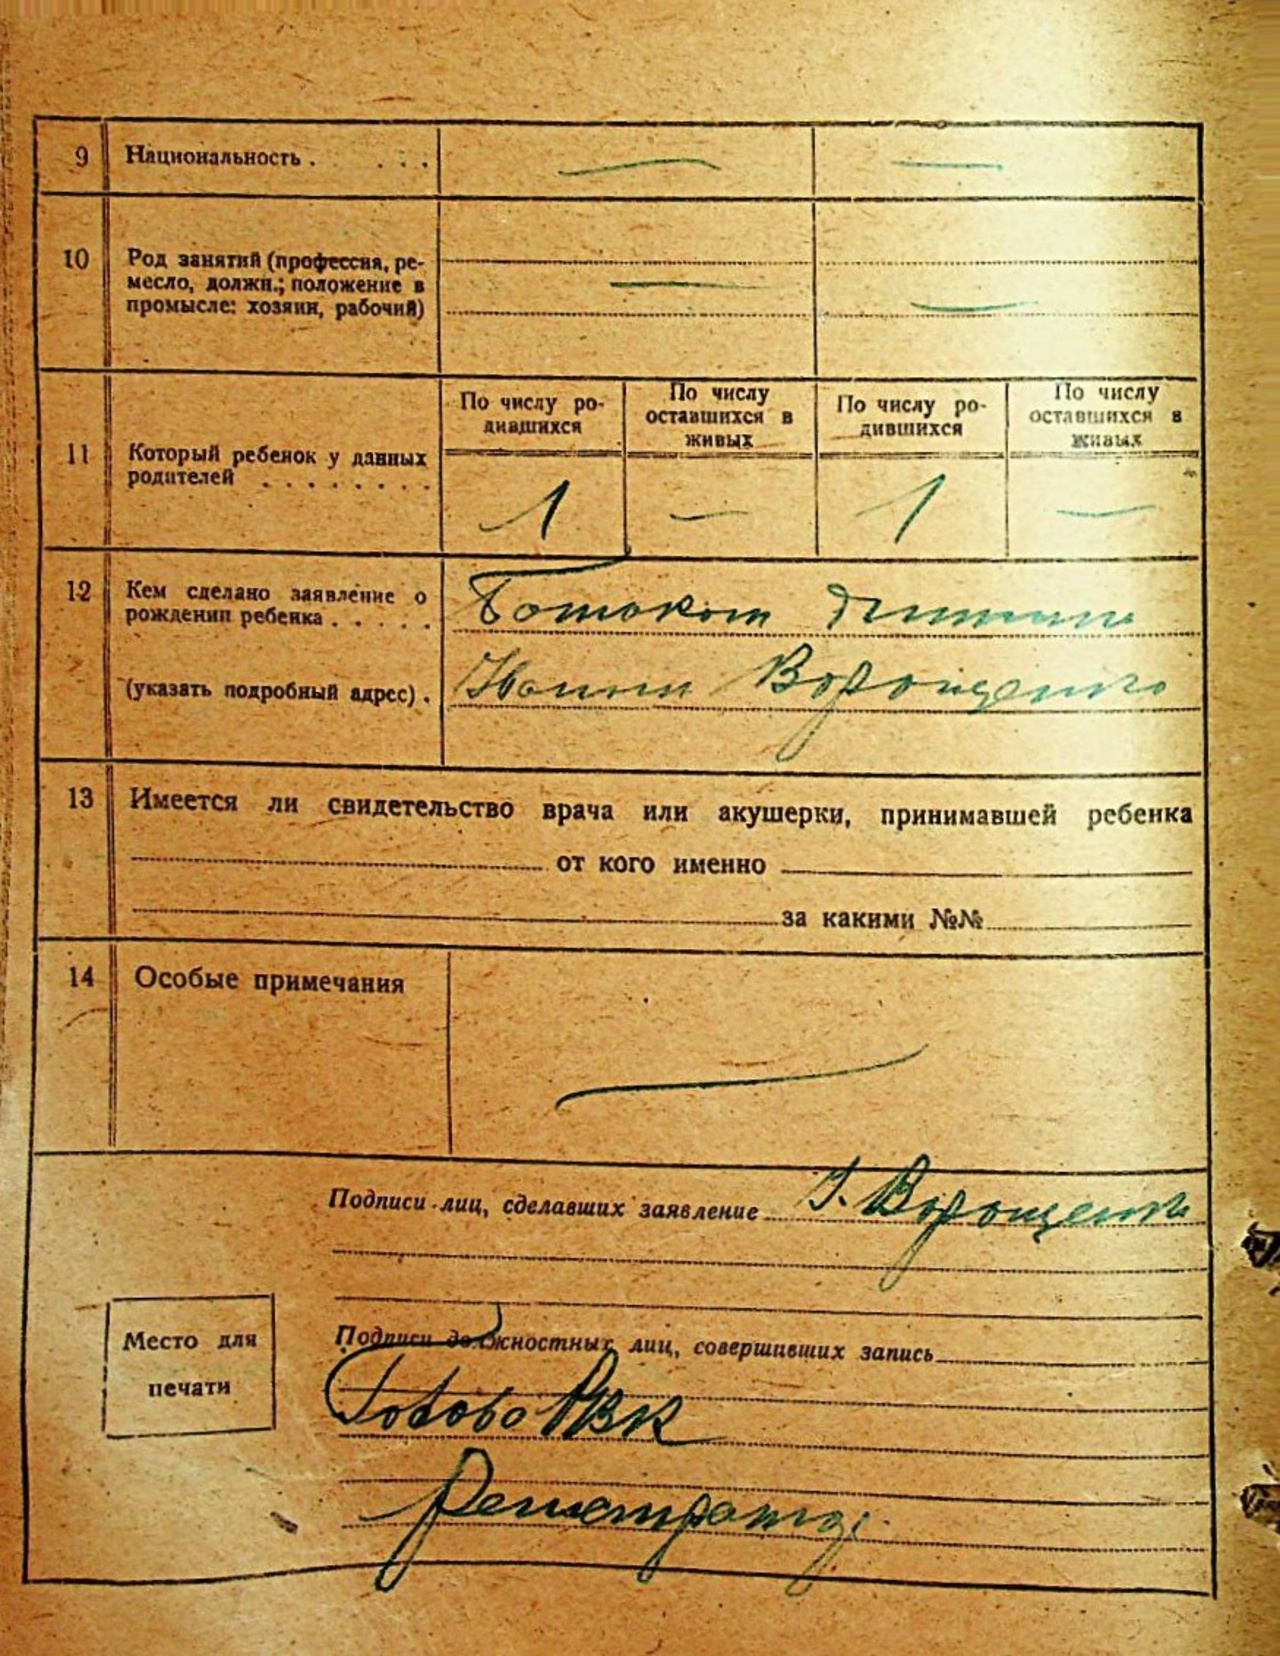 9 Национальность . . . .
— —
10 Род занятий (профессия, ре-
месло, должн.; положение в
промысле: хозяин, рабочий)
— —
По числу ро- По числу По числу ро- По числу
дившихся оставшихся в дившихся оставшихся в
живых живых
11 Который ребенок у данных
родителей . . . . . . . .
1 — 1 —
12 Кем сделано заявление о
рождении ребенка . . . . .
Батьком
(указать подробный адрес) .
Ворощенко
13 Имеется ли свидетельство врача или акушерки, принимавшей ребенка
от кого именно
за какими №№
14 Особые примечания
—
Подписи лиц, сделавших заявление Ворощенко
Место для
печати
Подписи должностных лиц, совершивших запись
Голова РВК